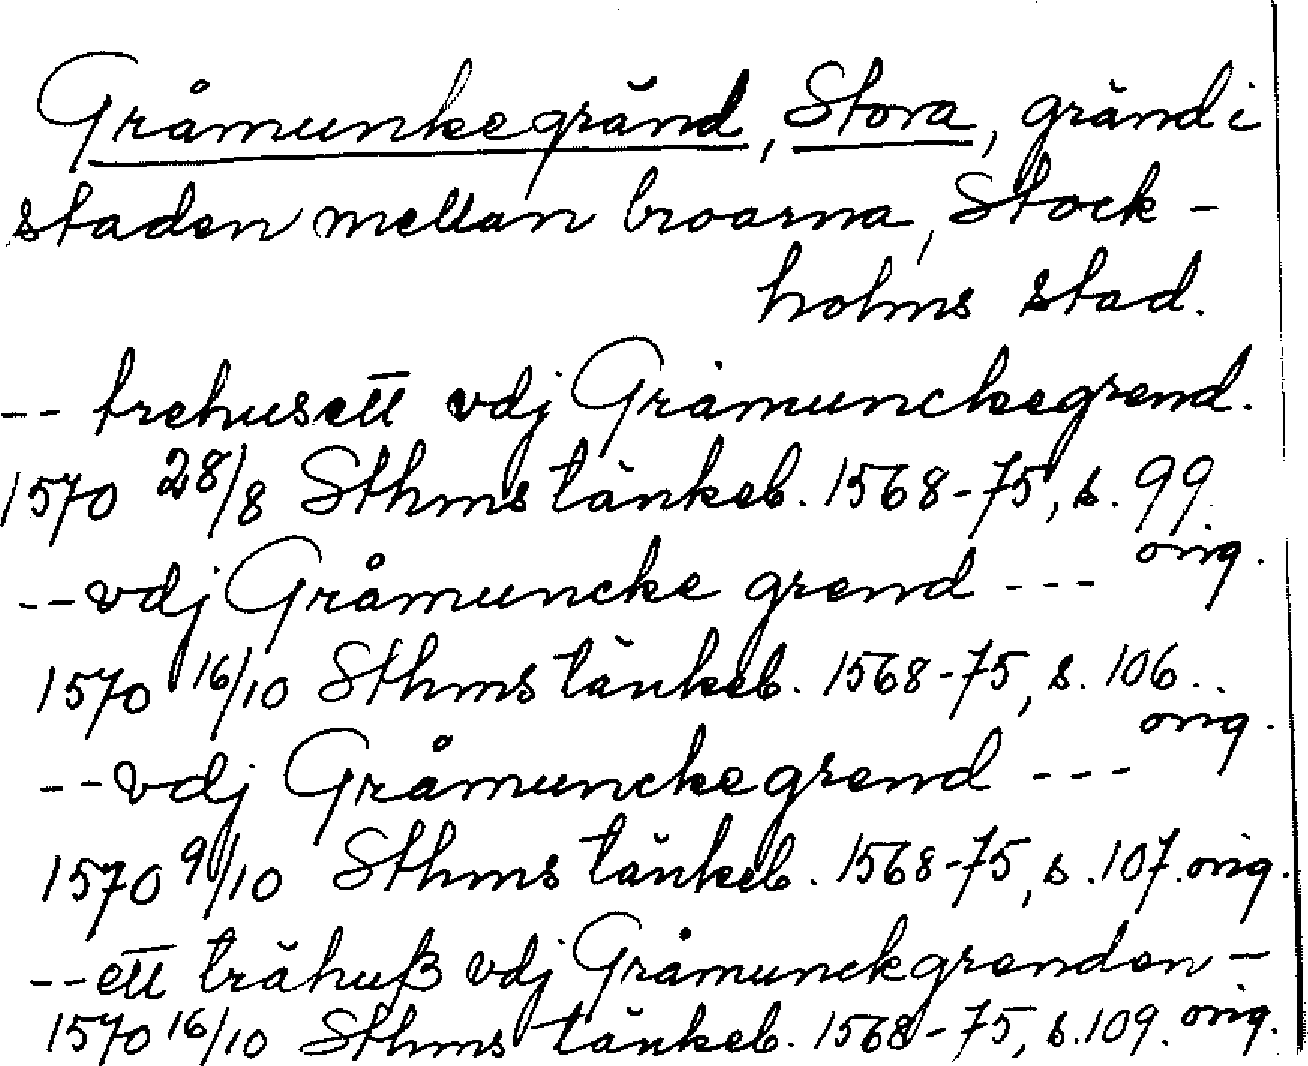 Gråmunkegränd, Stora, gränd i
staden mellan broarna, Stock-
holms stad.
-- trehusett vdj Gråmunckegrend.
1570 28/8 Sthms tänkeb. 1568-75, s. 99.
orig.
-- vdj Gråmuncke grend ---
1570 16/10 Sthms tänkeb. 1568-75, s. 106.
orig.
-- vdj Gråmuncke grend ---
1570 9/10 Sthms tänkeb. 1568-75, s. 107. orig.
-- ett trähuß vdj Gråmunckgrenden -
1570 16/10 Sthms tänkeb. 1568-75, s. 109. orig.